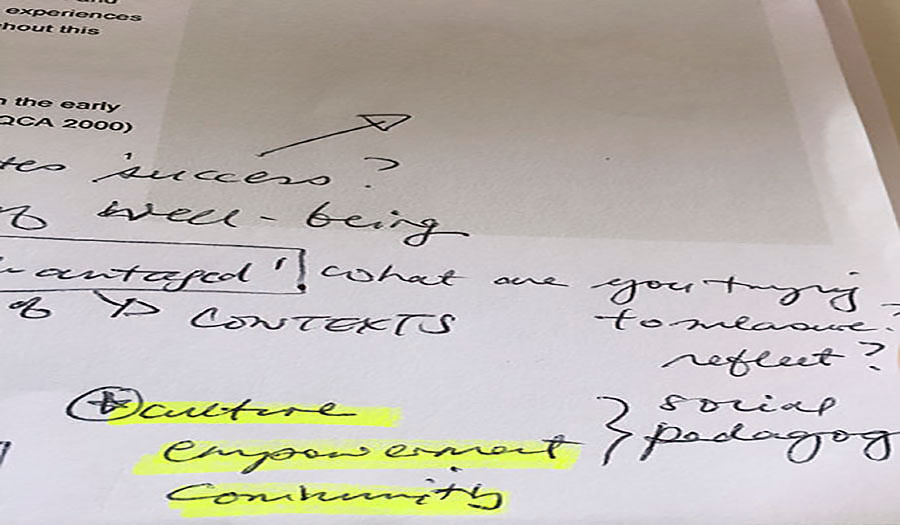 experiences
hout this
n the early
QCA 2000)
'success?
well-being
antaged'! what are you trying
to measure?
of CONTEXTS
reflect?
culture
empowerment
community
} social
pedagog